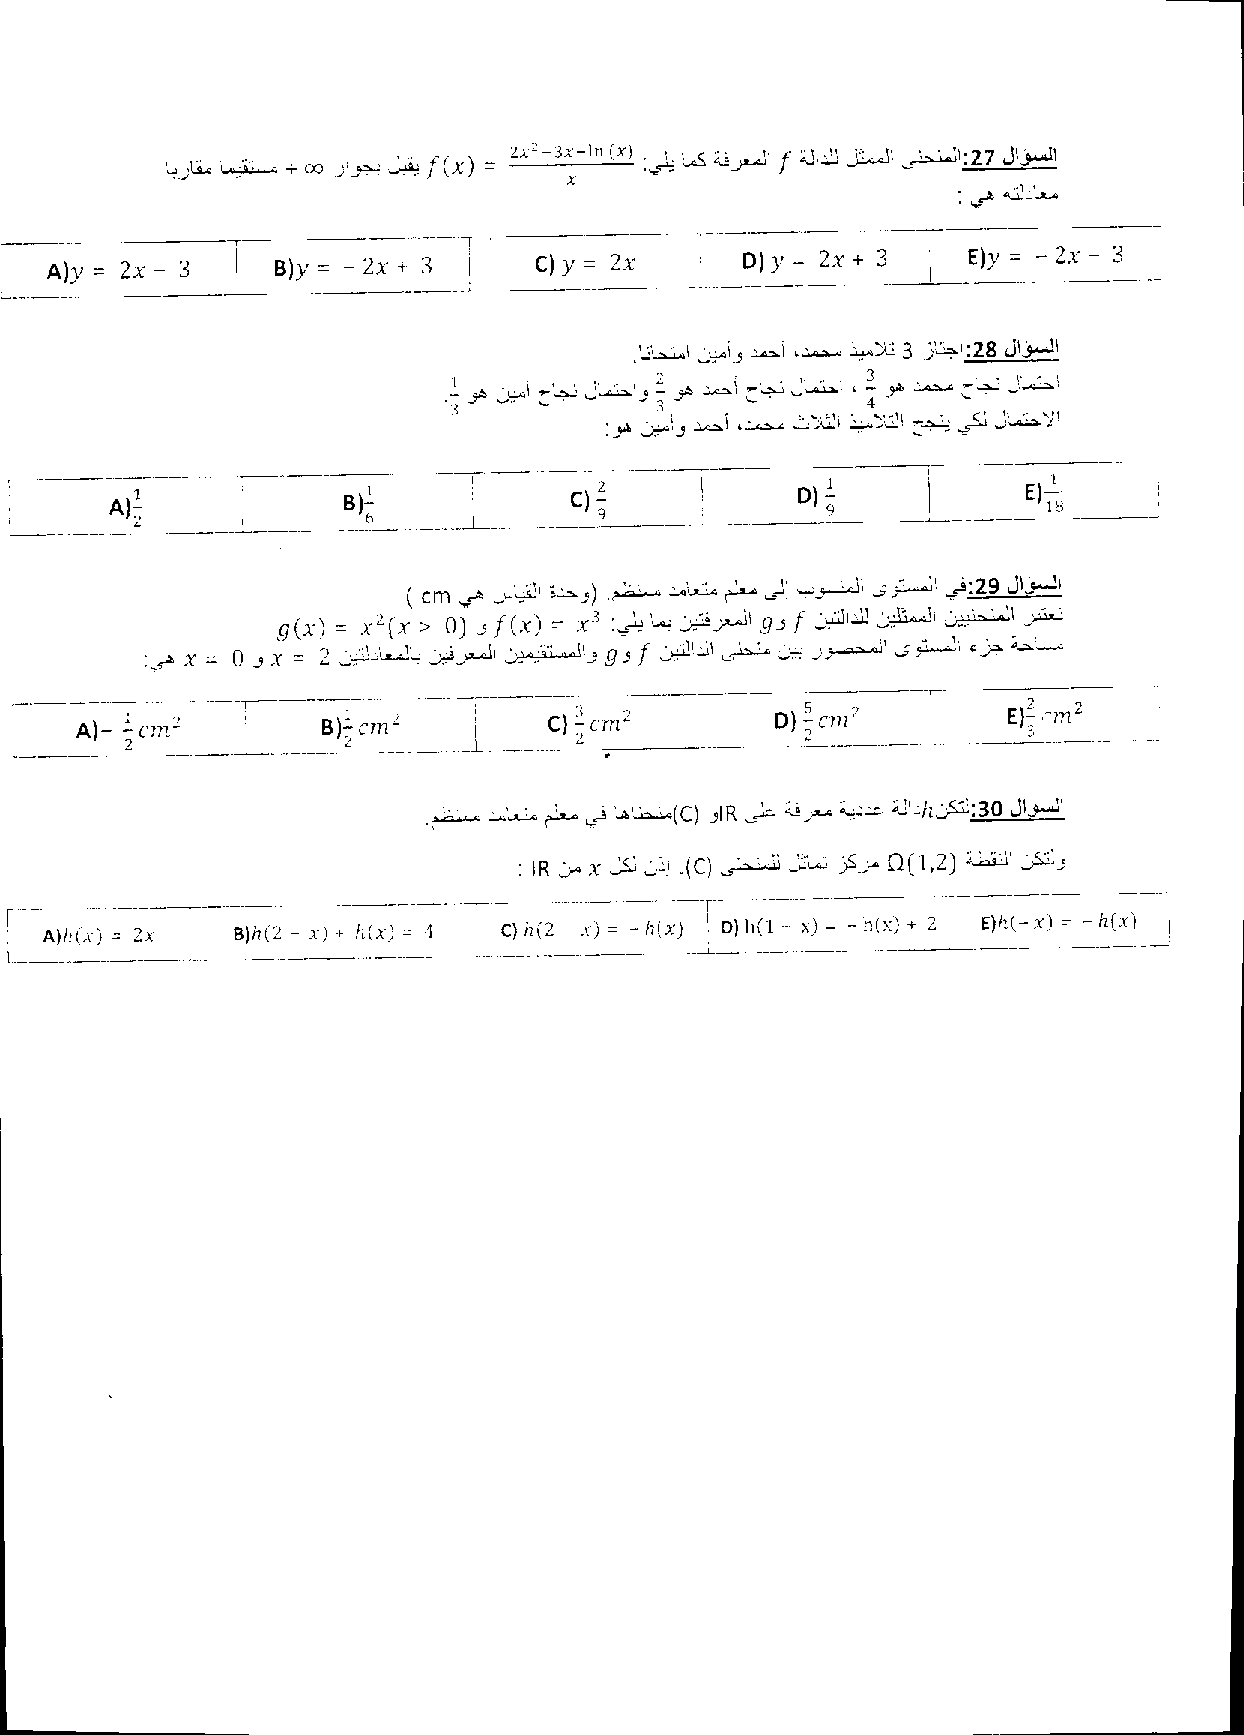 السؤال 27: المنحنى الممثل للدالة f المعرفة كما يلي: f(x) = \frac{2x²-3x-ln(x)}{x} يقبل بجوار +∞ مستقيما مقاربا
معادلته هي :
A) y = 2x - 3 B) y = -2x + 3 C) y = 2x D) y = 2x + 3 E) y = -2x - 3
السؤال 28: اجتاز 3 تلاميذ محمد، أحمد وأمين امتحانا.
احتمال نجاح محمد هو \frac{3}{4} ، احتمال نجاح أحمد هو \frac{2}{3} واحتمال نجاح أمين هو \frac{1}{3}.
الاحتمال لكي ينجح التلاميذ الثلاث محمد، أحمد وأمين هو:
A) \frac{1}{2} B) \frac{1}{6} C) \frac{2}{9} D) \frac{1}{9} E) \frac{1}{18}
السؤال 29: في المستوى المنسوب إلى معلم متعامد ممنظم. (وحدة القياس هي cm )
نعتبر المنحنيين الممثلين للدالتين f و g المعرفتين بما يلي: f(x) = x³ و g(x) = x² (x > 0)
مساحة جزء المستوى المحصور بين منحنى الدالتين f و g والمستقيمين المعرفين بالمعادلتين x = 2 و x = 0 هي:
A) - \frac{1}{2} cm² B) \frac{1}{2} cm² C) \frac{3}{2} cm² D) \frac{5}{2} cm² E) \frac{2}{3} cm²
السؤال 30: لتكن h دالة عددية معرفة على IR و (C) منحناها في معلم متعامد ممنظم.
ولتكن النقطة Ω(1,2) مركز تماثل للمنحنى (C). إذن لكل x من IR :
A) h(x) = 2x B) h(2 - x) + h(x) = 4 C) h(2 - x) = -h(x) D) h(1 - x) = -h(x) + 2 E) h(-x) = -h(x)